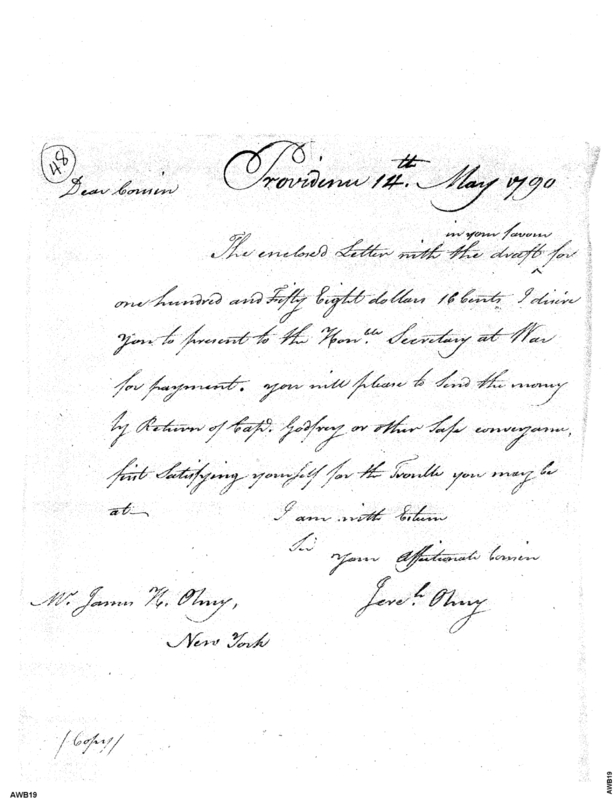 48
Providence 14th. May 1790
Dear Cousin
in your favour
The enclosed Letter with the draft ^ for
one hundred and Fifty Eight dollars 16 Cents I desire
you to present to the Honble. Secretary at War
for payment. you will please to Send the money
by Return of Capt. Godfrey or other Safe conveyance,
first Satisfying yourself for the Trouble you may be
at—
I am with Esteem
Sir
your Affectionate Cousin
Mr. James H. Olney,
Jereh. Olney
New York
/Copy/
AWB19
AWB19